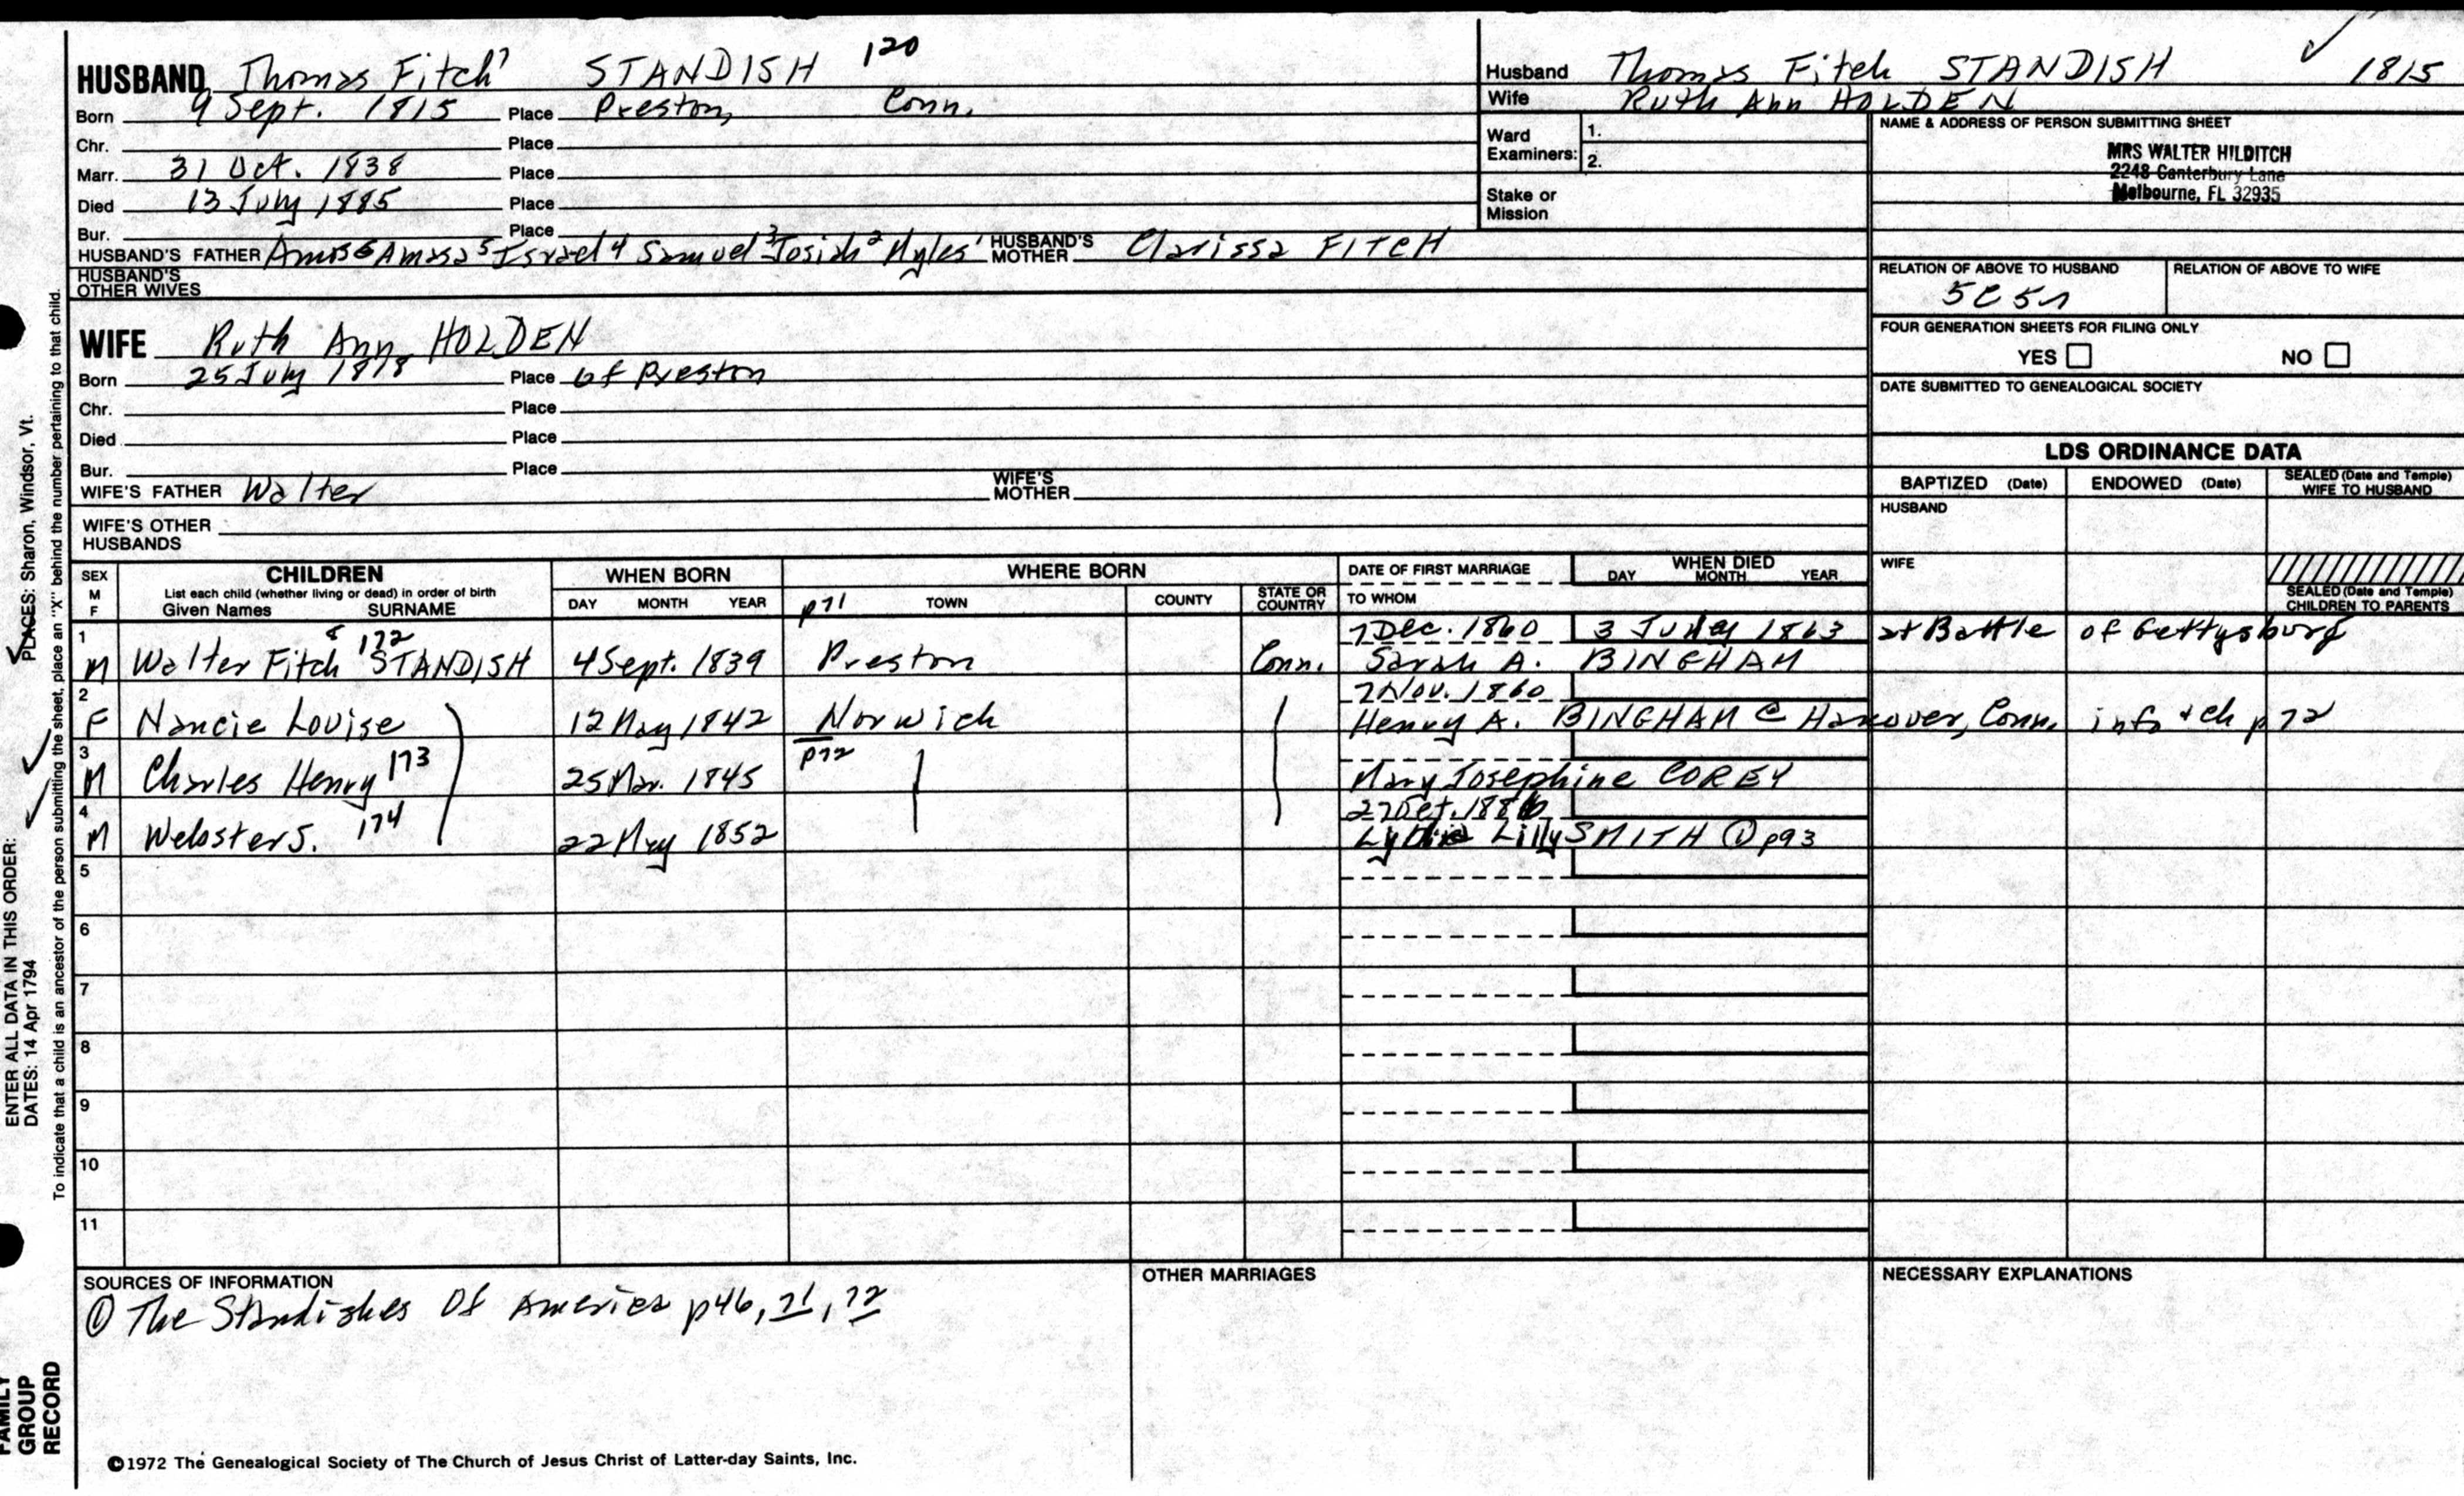 HUSBAND Thomas Fitch⁷ STANDISH 120
Born 9 Sept. 1815 Place Preston, Conn.
Chr. Place
Marr. 31 Oct. 1838 Place
Died 13 July 1885 Place
Bur. Place
HUSBAND'S FATHER Amos⁶ Amasa⁵ Israel⁴ Samuel³ Josiah² Myles¹ HUSBAND'S MOTHER Clarissa FITCH
HUSBAND'S OTHER WIVES
WIFE Ruth Ann HOLDEN
Born 25 July 1818 Place of Preston
Chr. Place
Died Place
Bur. Place
WIFE'S FATHER Walter WIFE'S MOTHER
WIFE'S OTHER HUSBANDS
✓ 1815
Husband Thomas Fitch STANDISH
Wife Ruth Ann HOLDEN
Ward Examiners: 1.
2.
Stake or Mission
NAME & ADDRESS OF PERSON SUBMITTING SHEET
MRS WALTER HILDITCH
2248 Canterbury Lane
Melbourne, FL 32935
RELATION OF ABOVE TO HUSBAND RELATION OF ABOVE TO WIFE
FOUR GENERATION SHEETS FOR FILING ONLY
YES NO
DATE SUBMITTED TO GENEALOGICAL SOCIETY
LDS ORDINANCE DATA
BAPTIZED (Date) ENDOWED (Date) SEALED (Date and Temple) WIFE TO HUSBAND
HUSBAND
WIFE
SEALED (Date and Temple) CHILDREN TO PARENTS
SEX M F CHILDREN WHEN BORN WHERE BORN DATE OF FIRST MARRIAGE WHEN DIED
List each child (whether living or dead) in order of birth
Given Names SURNAME DAY MONTH YEAR p71 TOWN COUNTY STATE OR COUNTRY TO WHOM DAY MONTH YEAR
1 8 172 7 Dec. 1860 3 July 1863 at Battle of Gettysburg
M Walter Fitch STANDISH 4 Sept. 1839 Preston Conn. Sarah A. BINGHAM
2 7 Nov. 1860
F Nancie Louise 12 May 1842 Norwich Henry A. BINGHAM @ Hanover, Conn. info + ch p72
3 p72
M Charles Henry 173 25 Mar. 1845 Mary Josephine COREY
4 27 Oct. 1886
M Webster S. 174 22 May 1852 Lilly SMITH ① p93
5
6
7
8
9
10
11
SOURCES OF INFORMATION OTHER MARRIAGES NECESSARY EXPLANATIONS
① The Standishes Of America p46, 71, 72
©1972 The Genealogical Society of The Church of Jesus Christ of Latter-day Saints, Inc.
ENTER ALL DATA IN THIS ORDER:
DATES: 14 Apr 1794 PLACES: Sharon, Windsor, Vt.
To indicate that a child is an ancestor of the person submitting the sheet, place an "X" behind the number pertaining to that child.
FAMILY
GROUP
RECORD